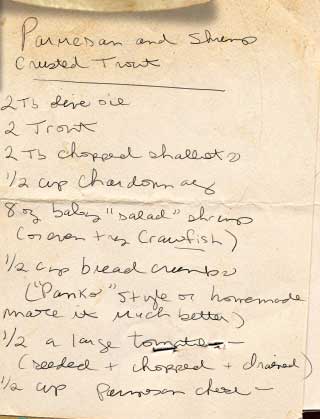 Parmesan and Shrimp
Crusted Trout
2 Tb olive oil
2 Trout
2 Tb chopped shallots
1/2 cup Chardonnay
8 oz baby "salad" shrimp
(or even try Crawfish)
1/2 cup bread crumbs
("Panko" style or homemade
make it much better)
1/2 a large tomato -
(seeded + chopped + drained)
1/2 cup parmesan cheese -